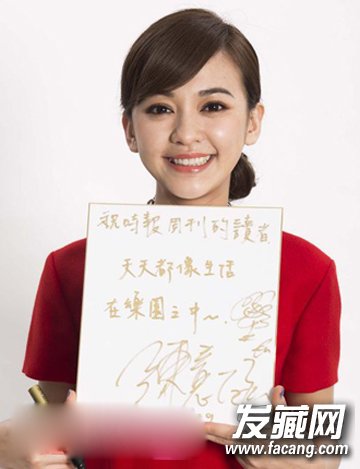 祝時報周刊的讀者
天天都像生活
在樂園之中～.
发藏网
www.facang.com